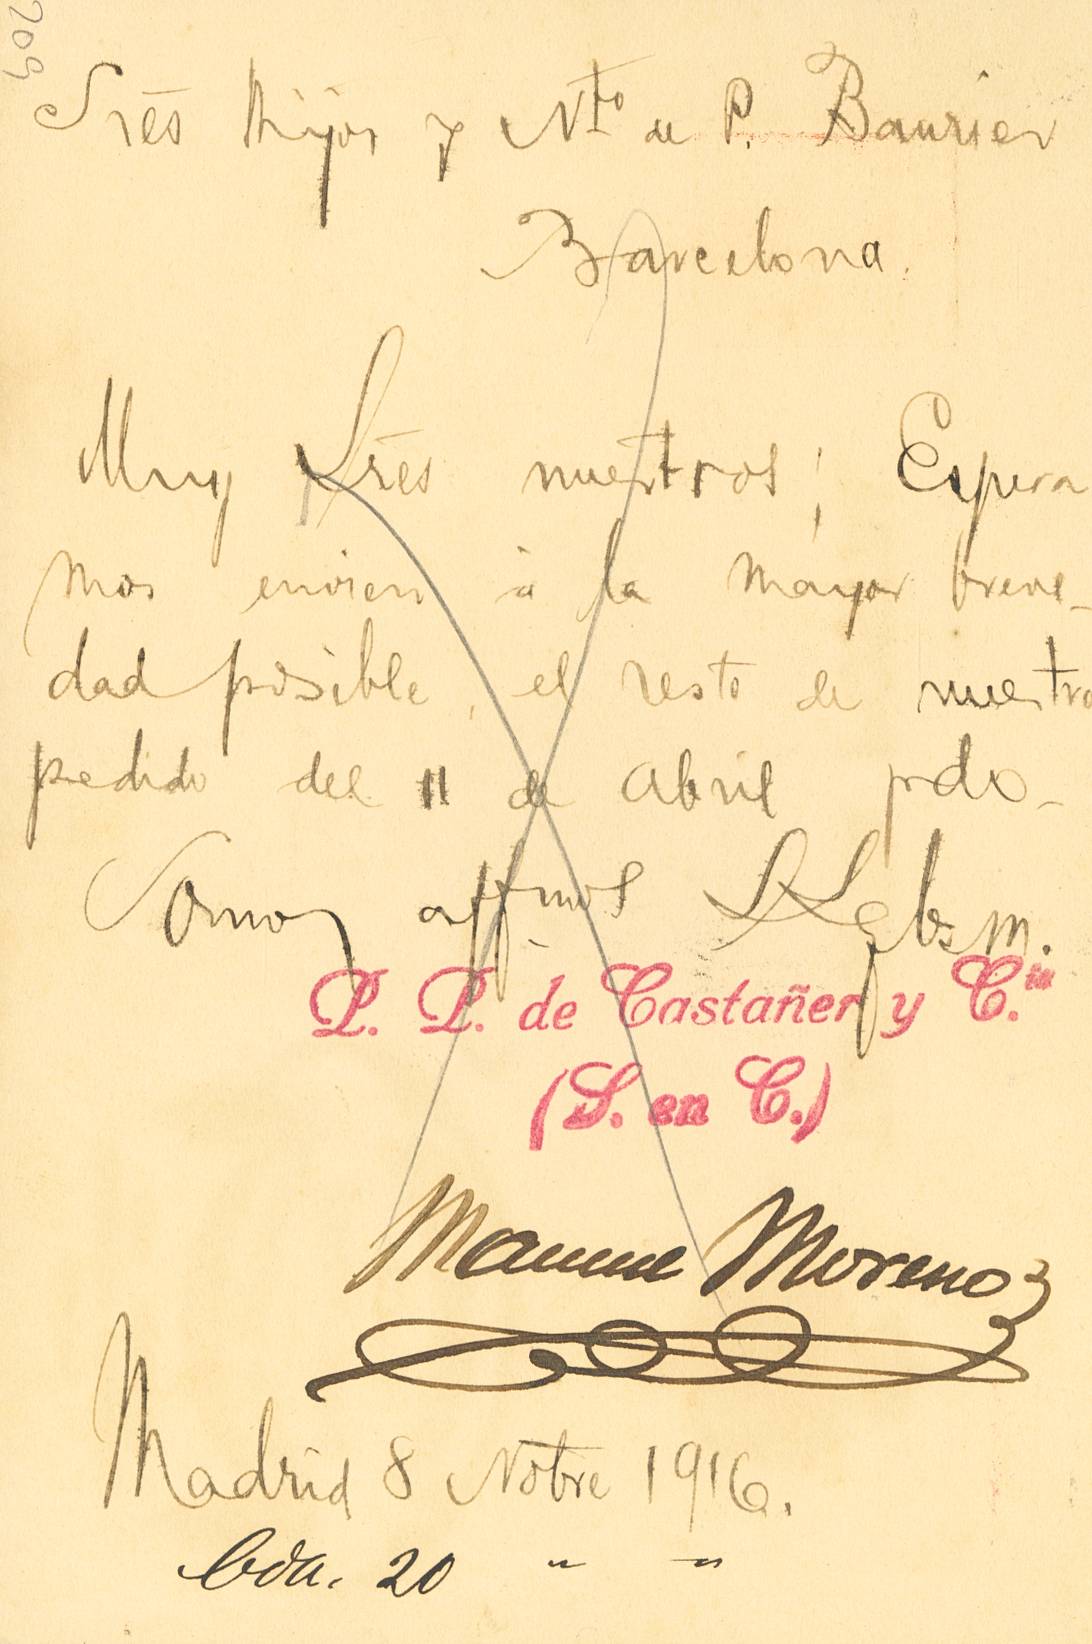 209
Sres Hijos y Nto de P. Baurier
Barcelona.
Muy Sres nuestros; Espera
mos envien á la mayor breve-
dad posible, el resto de nuestro
pedido del 11 de abril pdo-
Somos affmos S S q b s m.
P. P. de Castañer y C.ia
(S. en C.)
Manuel Moreno
Madrid 8 Nobre 1916.
Cda. 20 " "